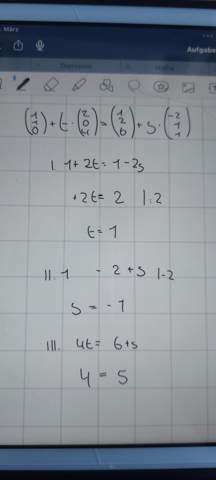 März
Aufgabe
(1 1 0) + t · (2 0 4) = (1 2 6) + s · (-2 1 1)
I. 1+2t = 1-2s
+2t = 2 |:2
t = 1
II. 1 - 2+s |-2
s = -1
III. 4t = 6+s
4 = 5